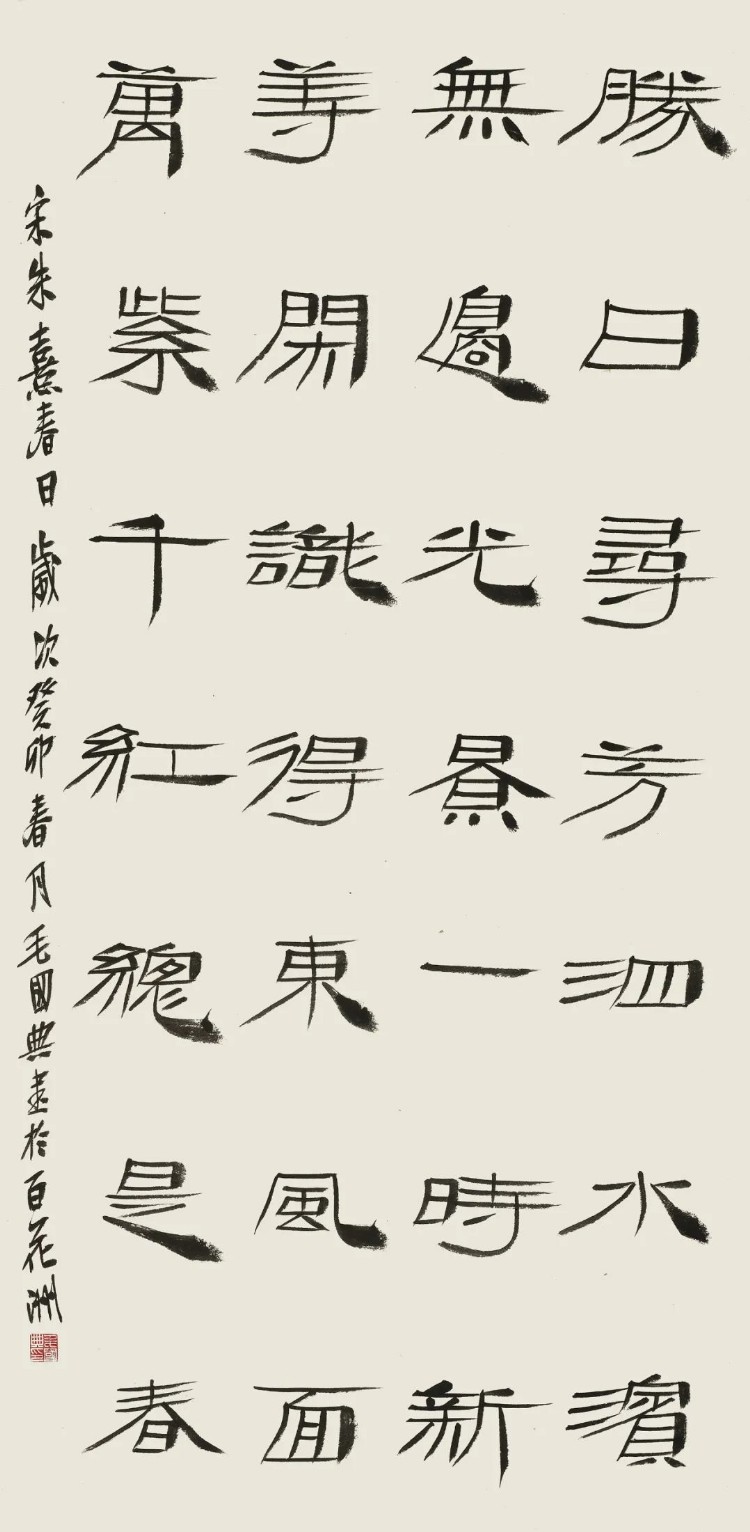 勝日尋芳泗水濱
無邊光景一時新
等閑識得東風面
萬紫千紅總是春
宋朱熹春日歲次癸卯春月毛國典書於百花洲